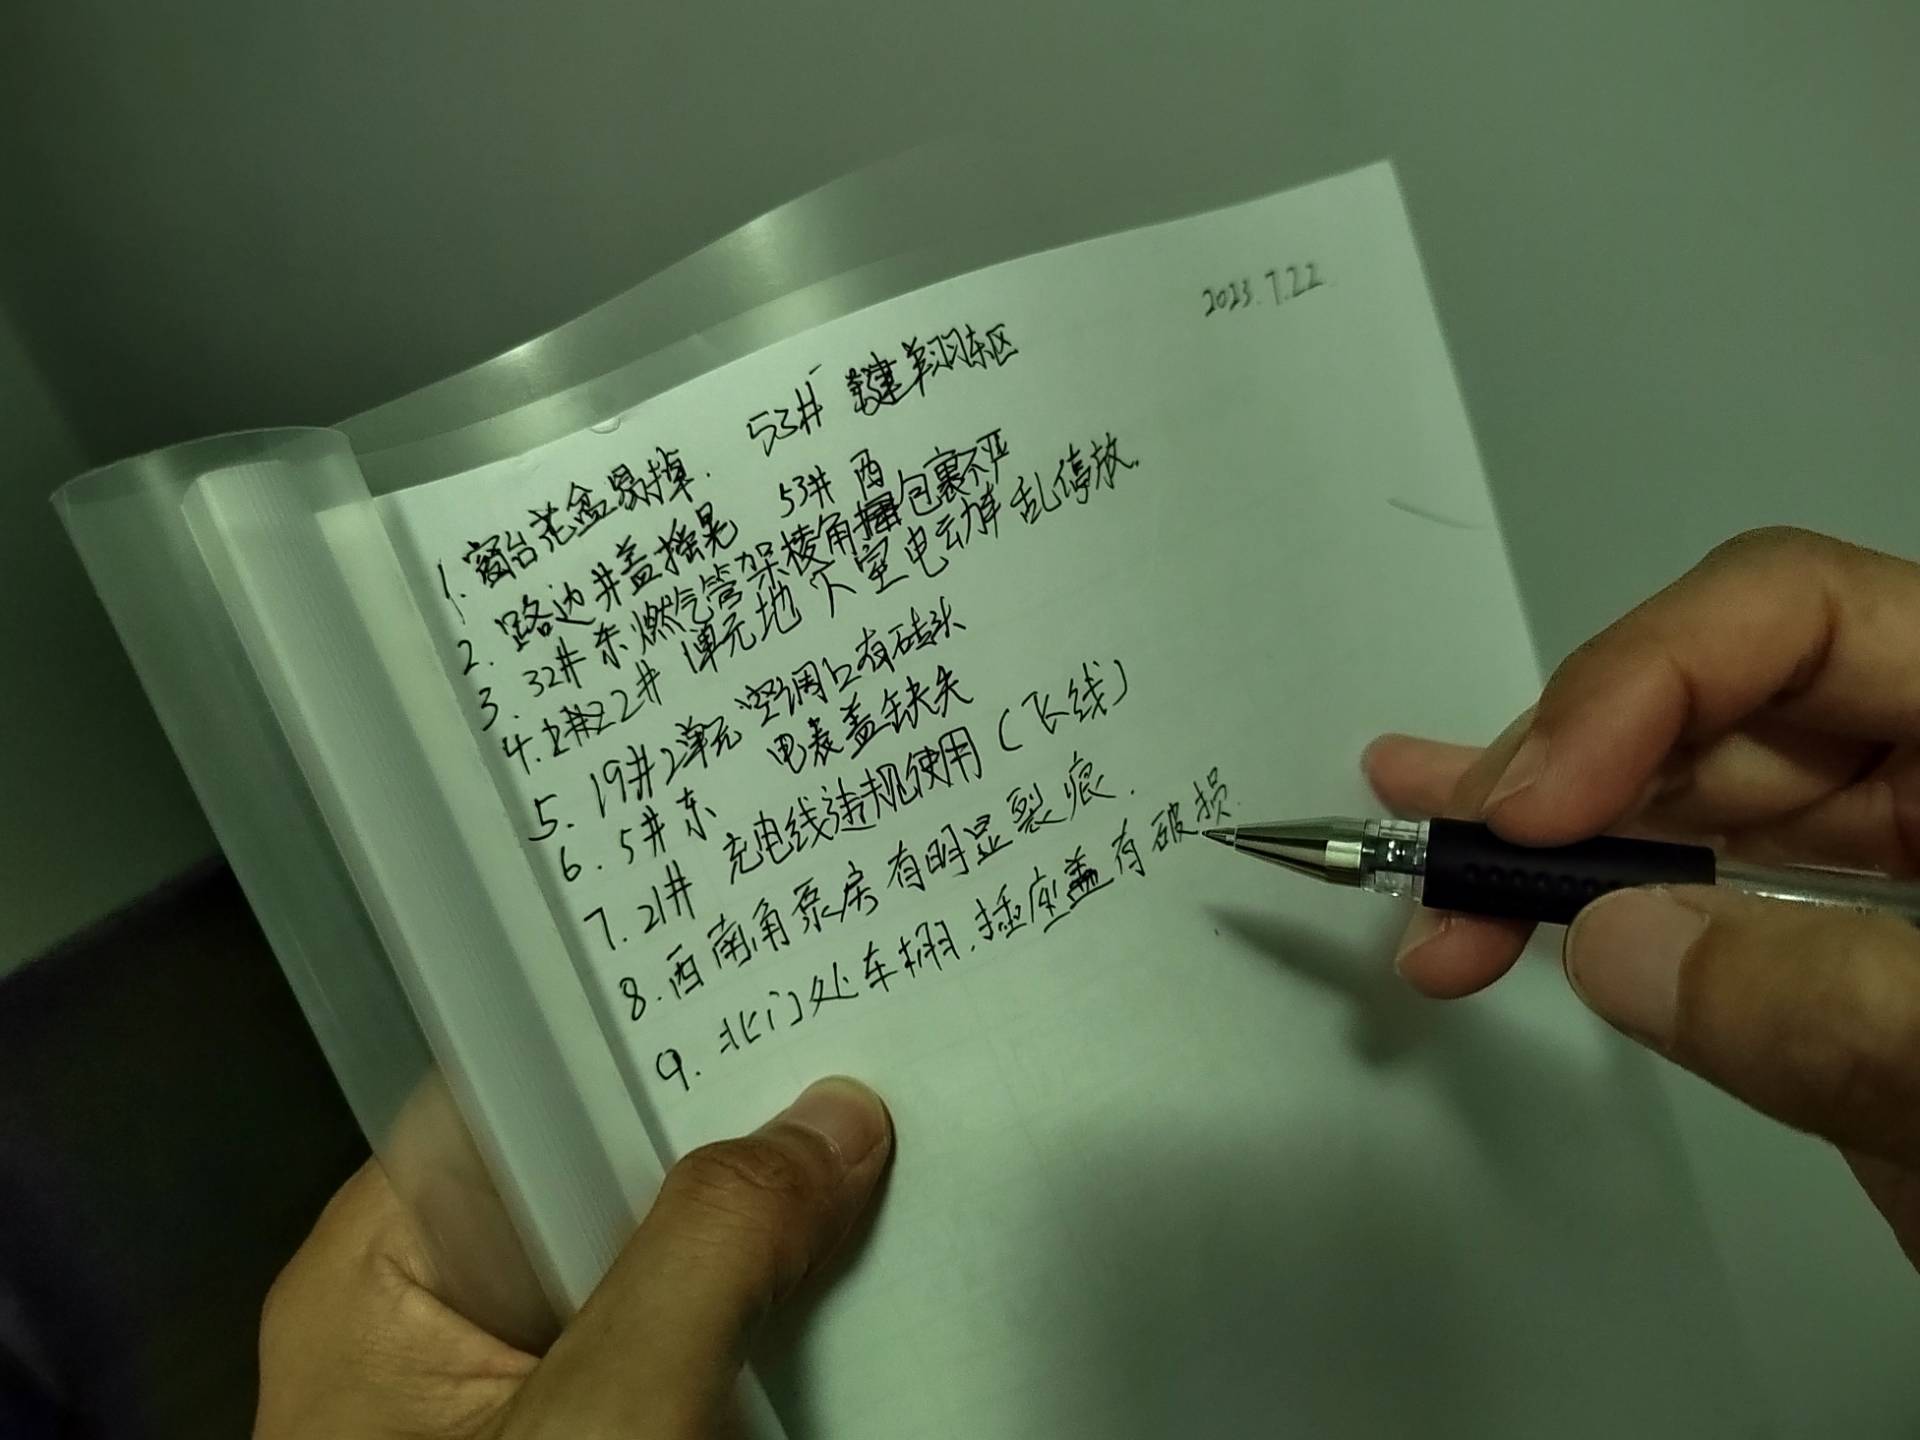 2023.7.22
1. 窗台花盆易掉. 53# 建翔东区
2. 路边井盖摇晃 53# 西
3. 32# 东燃气管架棱角包裹不严
4. 22# 1单元地下室电动车乱停放.
5. 19# 2单元空调口有砖头
6. 5# 东 电表盖缺失
7. 21# 充电线违规使用(飞线)
8. 西南角泵房有明显裂痕.
9. 北门处车棚.插座盖有破损.